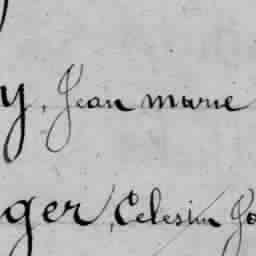 y, Jean marie
ger, Celestin Jo